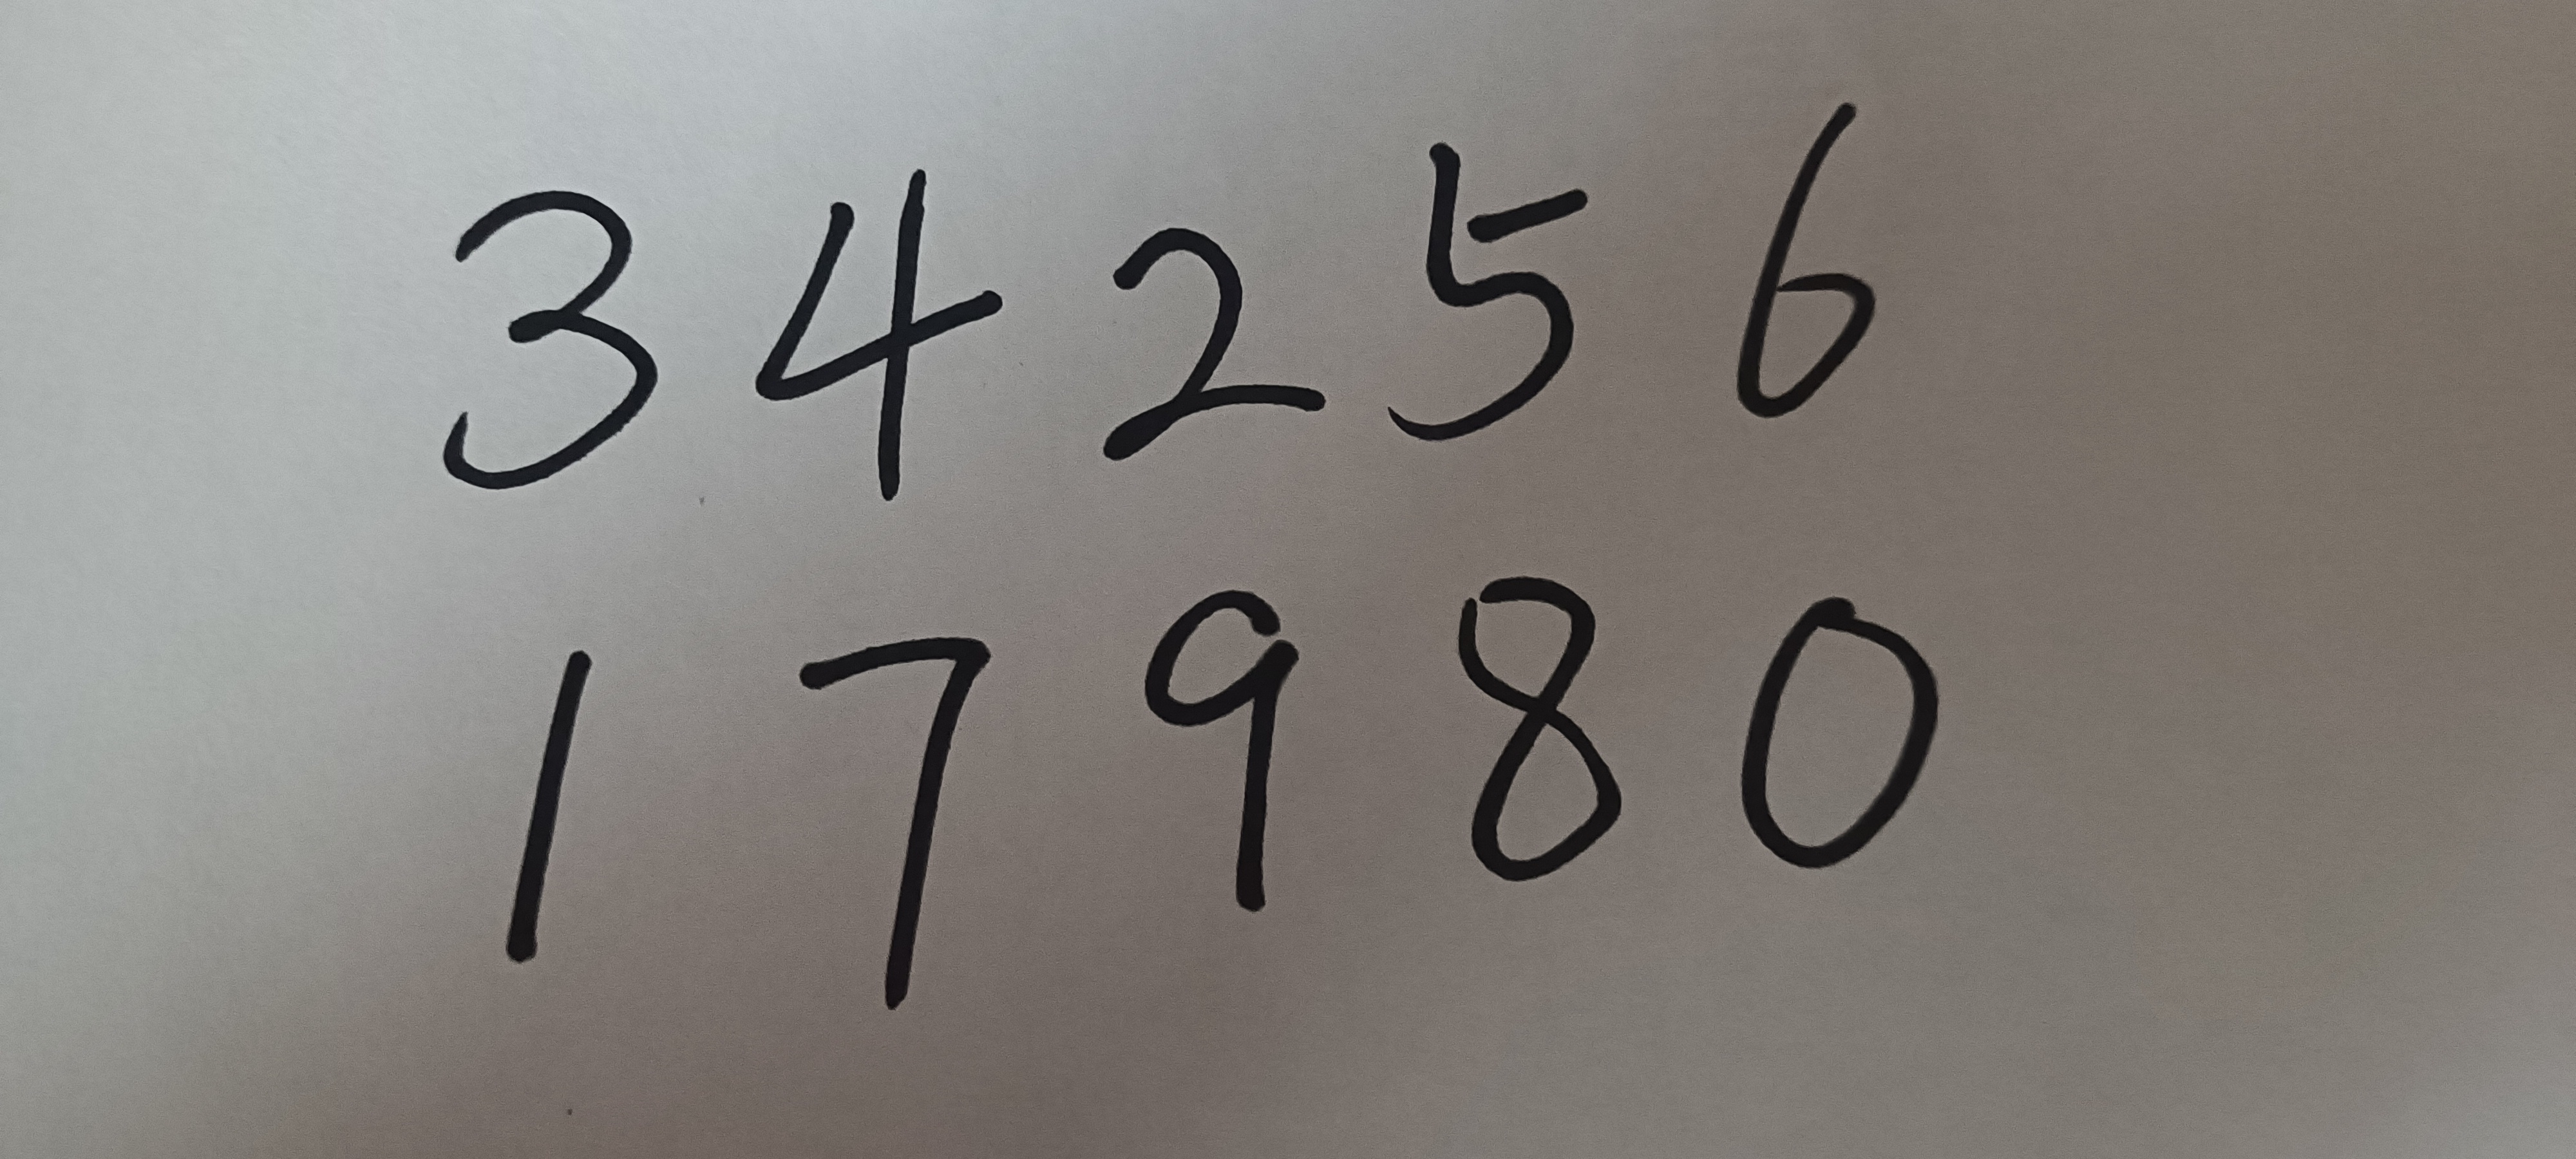 3 4 2 5 6
1 7 9 8 0